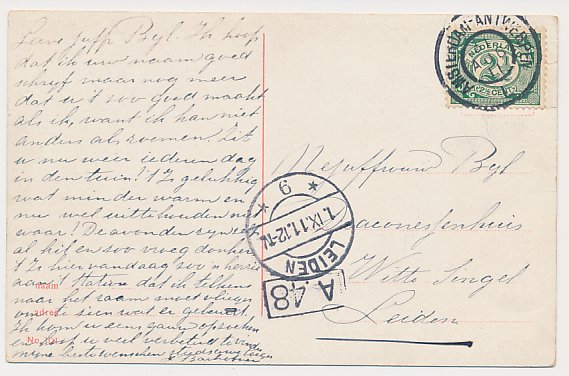 Lieve Juffr Byl. Ik hoop
dat ik uw naam goed
schryf maar nog meer
dat u 't zoo goed maakt
als ik, want ik kan niet
anders als roemen. Zit
u nu weer iederen dag
in den tuin? 't Is gelukkig
wat minder warm en
nu wel uittehouden niet
waar? De avonden zyn
al hif en zoo vroeg donker
't Is hier vandaag zoo'n herrie
aan 't station dat ik telkens
naar het raam moet vliegen
om te zien wat er gebeurt.
Ik kom u eens gauw opzoeken
en hoop u veel verbeterd te vinden
myne beste wenschen
naam
adres
No. 101
NEDERLAND
2½
2½ CENT
AMSTERDAM-ANTWERPEN
Mejuffrouw Byl
Diaconessenhuis
Witte Singel
Leiden
* 6 *
1.IX.11.12-1V
LEIDEN
A.48